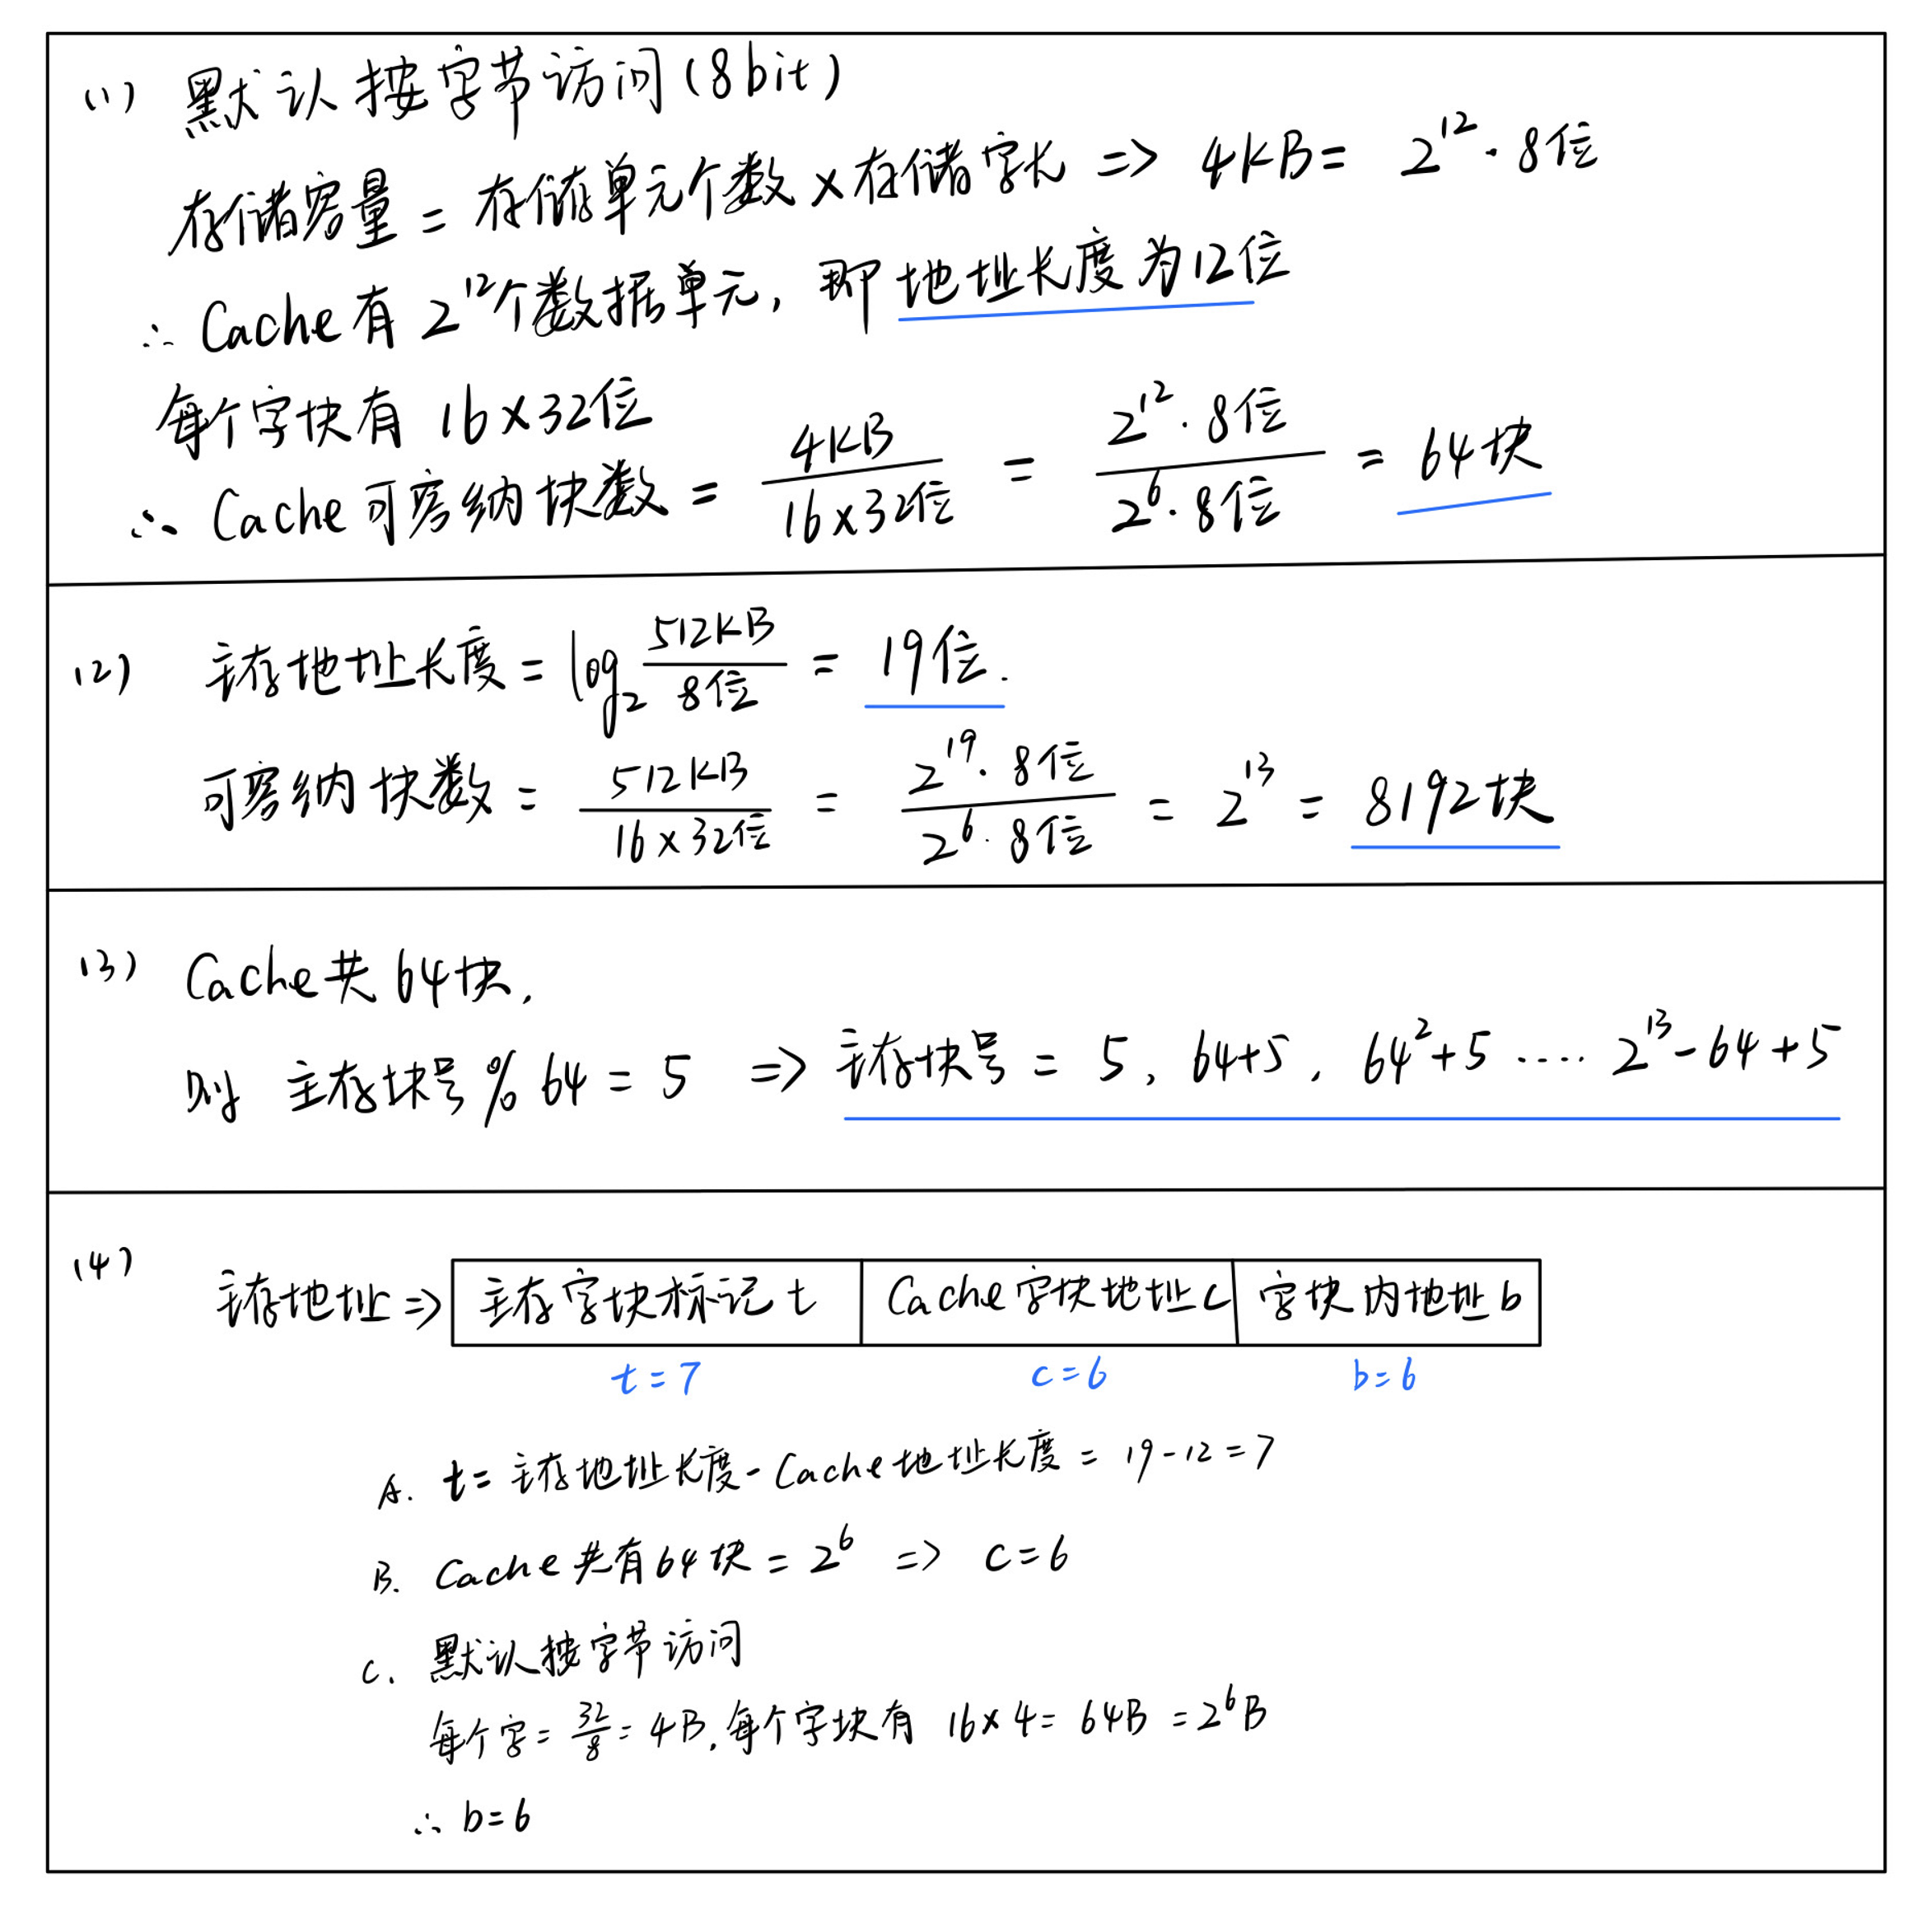 (1) 默认按字节访问(8bit)
存储容量 = 存储单元个数 × 存储字长 => 4KB = 2^12 · 8位
∴ Cache有 2^12个数据单元, 即地址长度为12位
每个字块有 16×32位
∴ Cache可容纳块数 = 4KB / 16×32位 = 2^12 · 8位 / 2^6 · 8位 = 64块
(2) 主存地址长度 = log2 512KB / 8位 = 19位.
可容纳块数 = 512KB / 16×32位 = 2^19 · 8位 / 2^6 · 8位 = 2^13 = 8192块
(3) Cache共64块,
则 主存块号 % 64 = 5 => 主存块号 = 5, 64+5, 64^2+5 ···· 2^13-64+5
(4) 主存地址 => 主存字块标记 t Cache字块地址c 字块内地址b
t=7 c=6 b=6
A. t= 主存地址长度-Cache地址长度 = 19-12=7
B. Cache共有64块 = 2^6 => c=6
C. 默认按字节访问
每个字 = 32/8 = 4B, 每个字块有 16×4= 64B =2^6B
∴ b=6